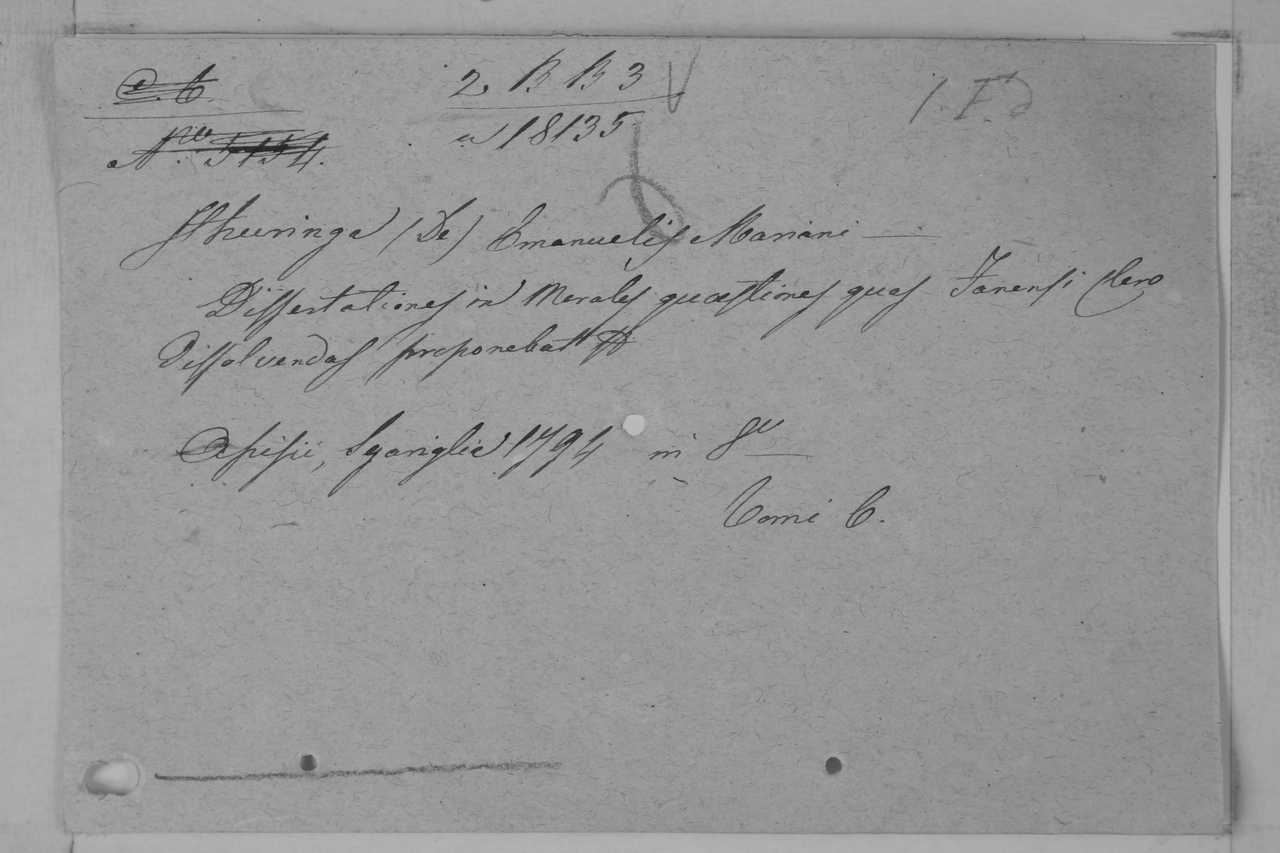 C. C
2. B B 3
1. F. d
Nro 5154.
a 18135
Ithuringa (De) Emanuelis Mariani
Dissertationes in Morales quæstiones quas Fanensi Clero
dissolvendas proponebat
Assisii, Sgariglia 1794 in 8o
Tomi 6.